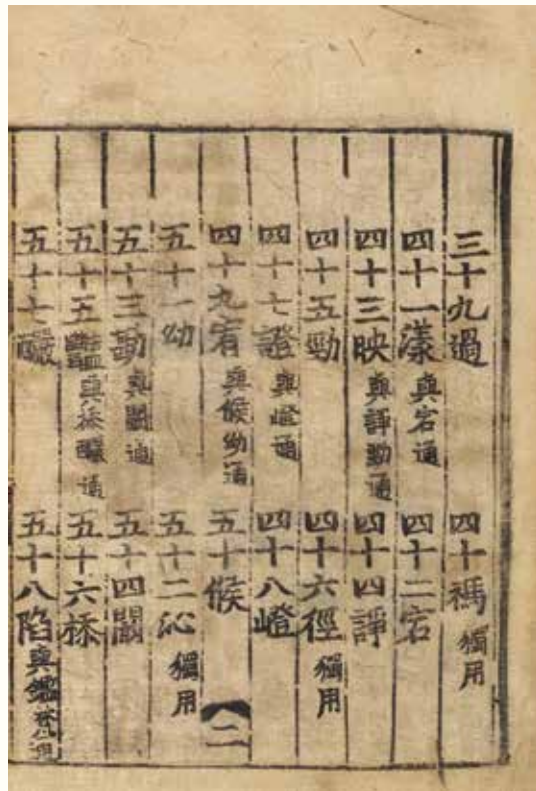 三十九過　四十禡獨用
四十一漾與宕通　四十二宕
四十三映與諍勁通　四十四諍
四十五勁　四十六徑獨用
四十七證與嶝通　四十八嶝
四十九宥與候幼通　五十候
二
五十一幼　五十二沁獨用
五十三勘與闞通　五十四闞
五十五豔與㮇釅通　五十六㮇
五十七釅　五十八陷與鑑梵通